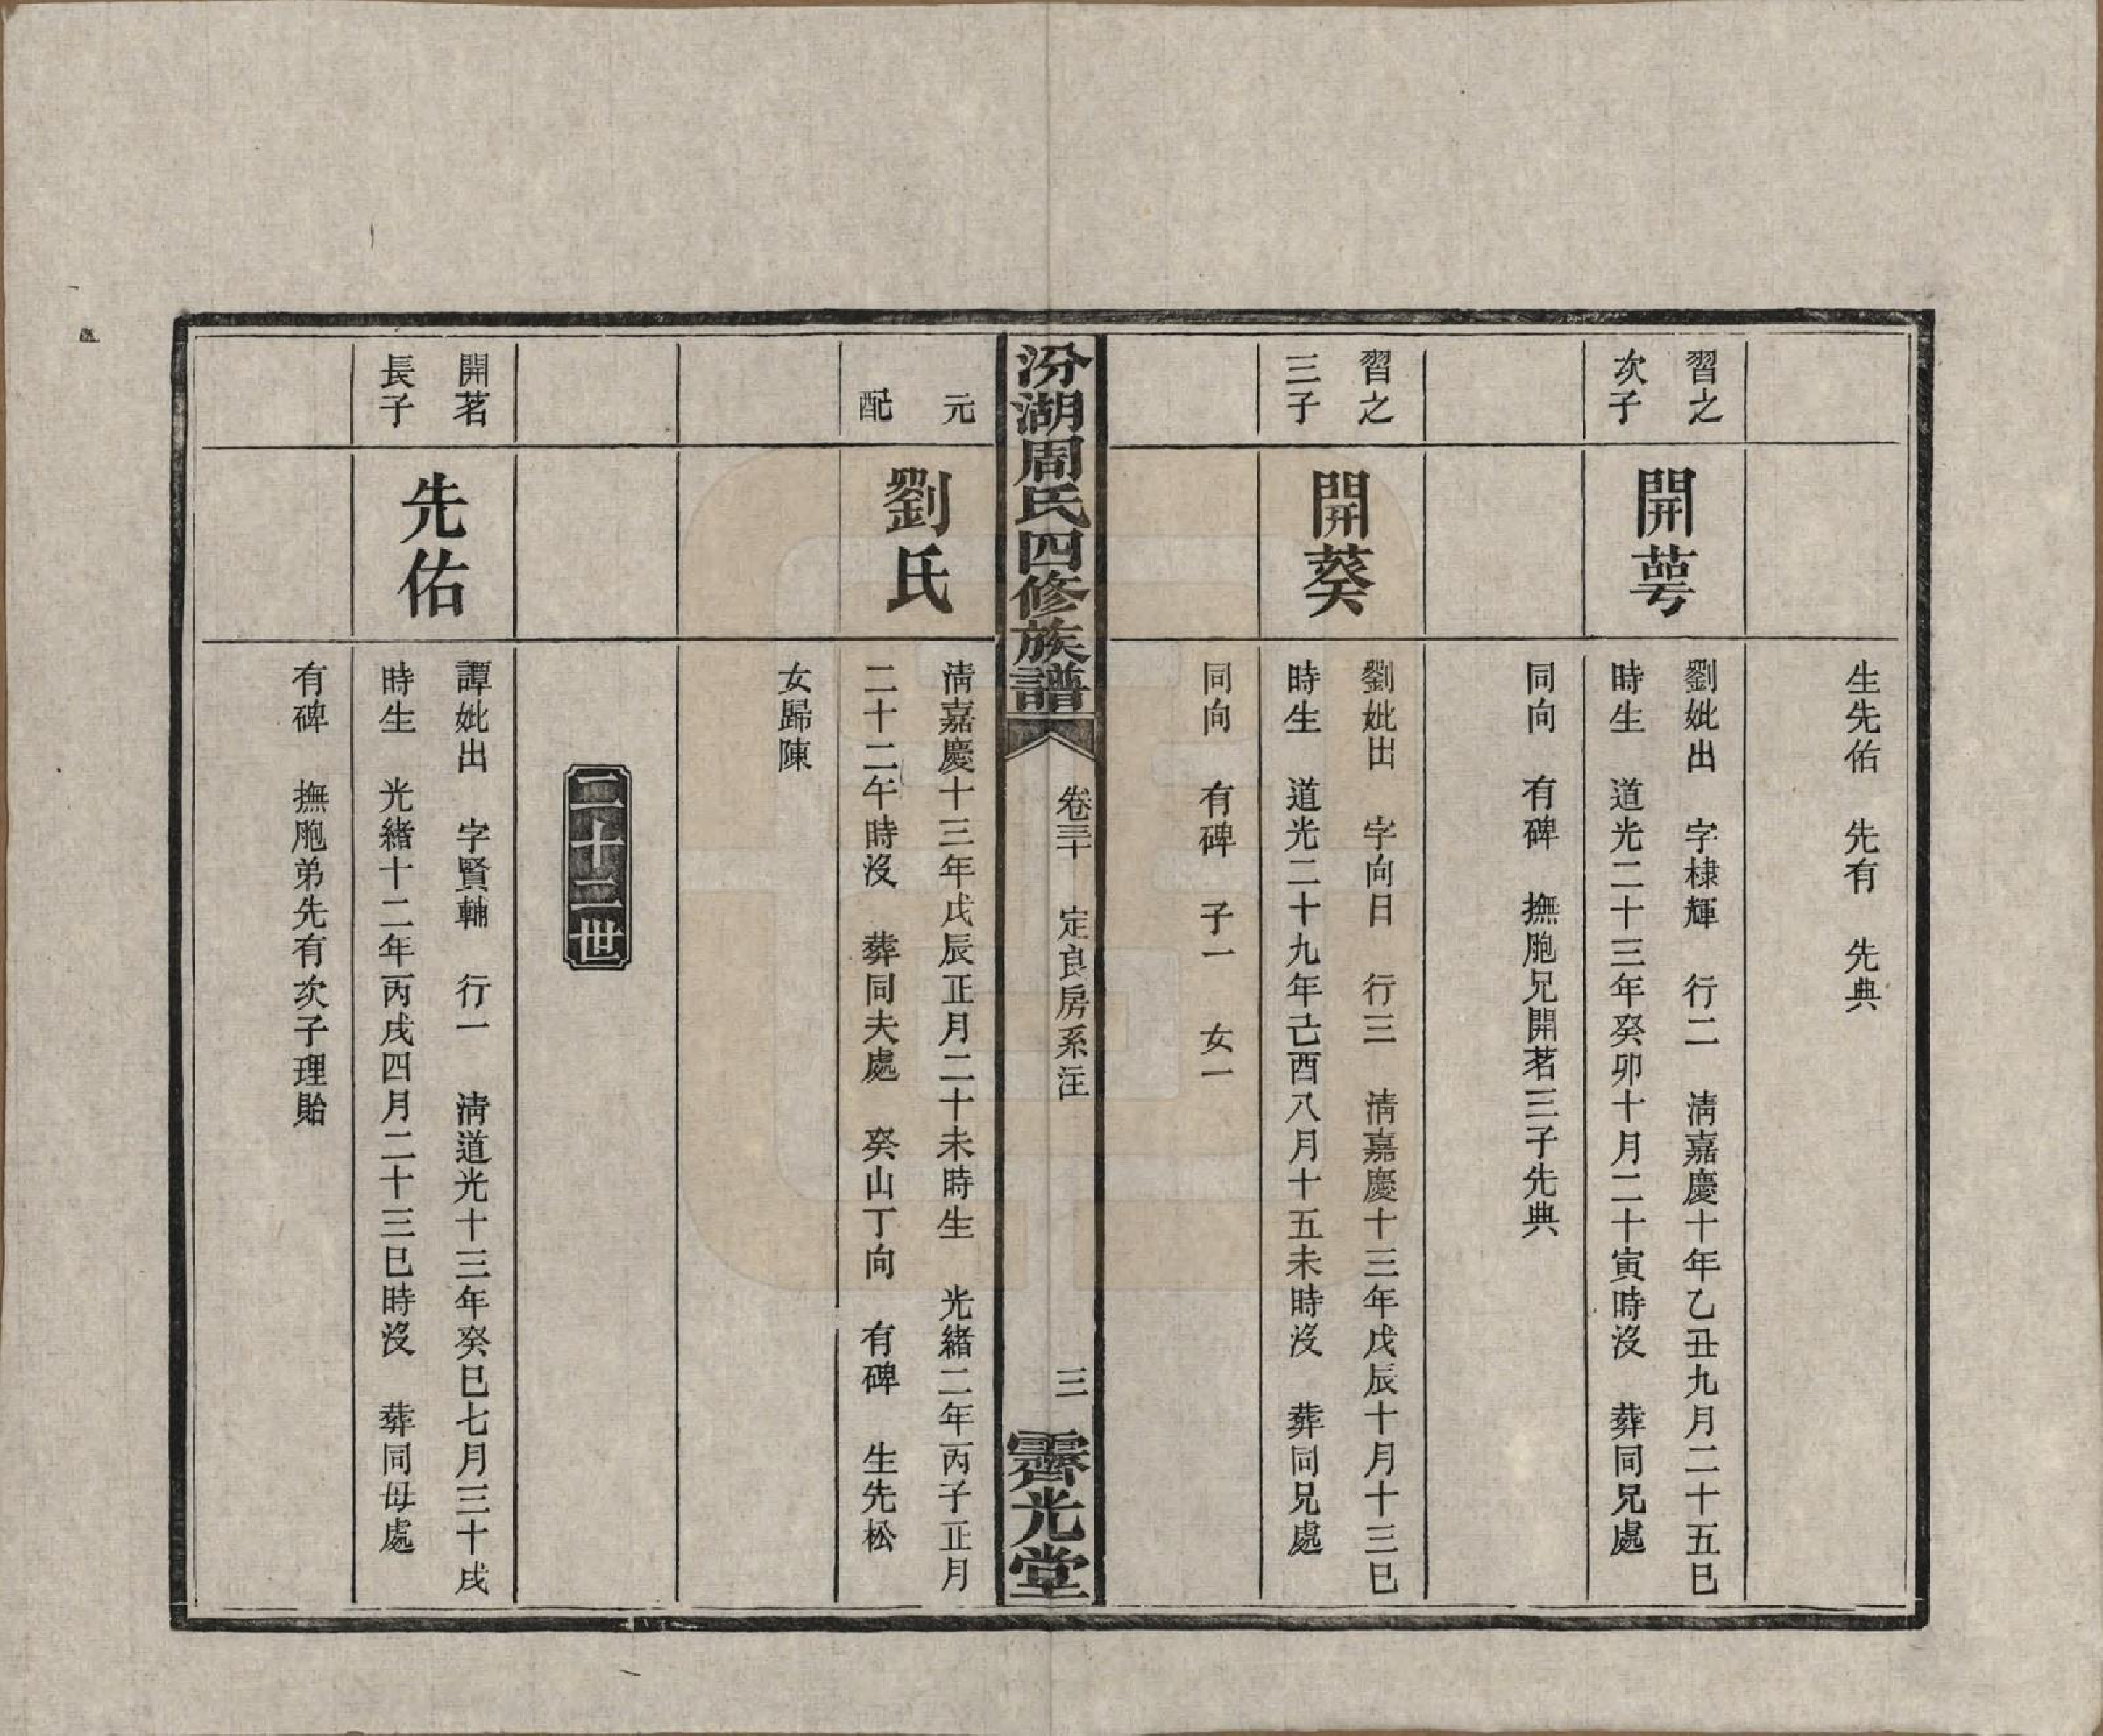 生先佑　先有　先典
習之
次子
開萼
劉妣出　字棣輝　行二　清嘉慶十年乙丑九月二十五巳
時生　道光二十三年癸卯十月二十寅時沒　葬同兄處
同向　有碑　撫胞兄開茗三子先典
習之
三子
開葵
劉妣出　字向日　行三　清嘉慶十三年戊辰十月十三巳
時生　道光二十九年己酉八月十五未時沒　葬同兄處
同向　有碑　子一　女一
汾湖周氏四修族譜
卷三十　定良房系注
三
霽光堂
元
配
劉氏
清嘉慶十三年戊辰正月二十未時生　光緒二年丙子正月
二十二午時沒　葬同夫處　癸山丁向　有碑　生先松
女歸陳
二十二世
開茗
長子
先佑
譚妣出　字賢輔　行一　清道光十三年癸巳七月三十戌
時生　光緒十二年丙戌四月二十三巳時沒　葬同母處
有碑　撫胞弟先有次子理貽